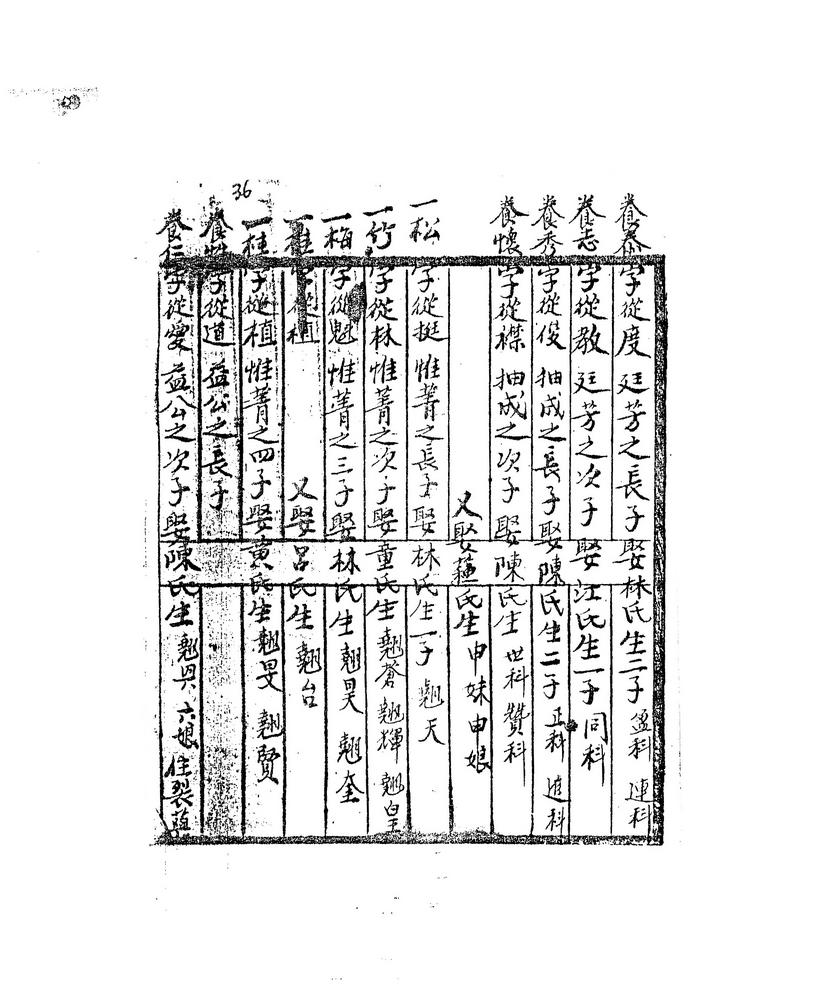 養泰字從度 廷芳之長子娶林氏生二子 盈科 連科
養志字從教 廷芳之次子 娶江氏生一子同科
養秀字從俊 抽成之長子娶陳氏生二子 正科 進科
養懷字從襟 抽成之次子 娶陳氏生 世科贊科
又娶蘓氏生申妹申娘
一松字從挺 惟菁之長子娶林氏生一子 翹天
一竹字從林惟菁之次子娶童氏生 翹蒼翹輝翹皇
一梅字從魁 惟菁之三子娶林氏生翹昊 翹奎
一桂字從植 又娶呂氏生 翹台
一桂字從植惟菁之四子娶黄氏生翹旻 翹賢
養性字從道 益公之長子
養仁字從愛 益公之次子娶陳氏生 翹 六娘住裂
36